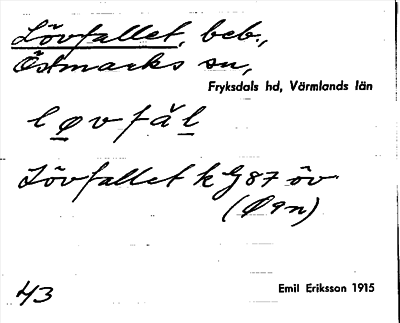 Lövfallet, beb.,
Östmarks sn,
Fryksdals hd, Värmlands län
l ø v f ă l
Lövfallet k G 87 öv
(Ø 9 n)
43
Emil Eriksson 1915